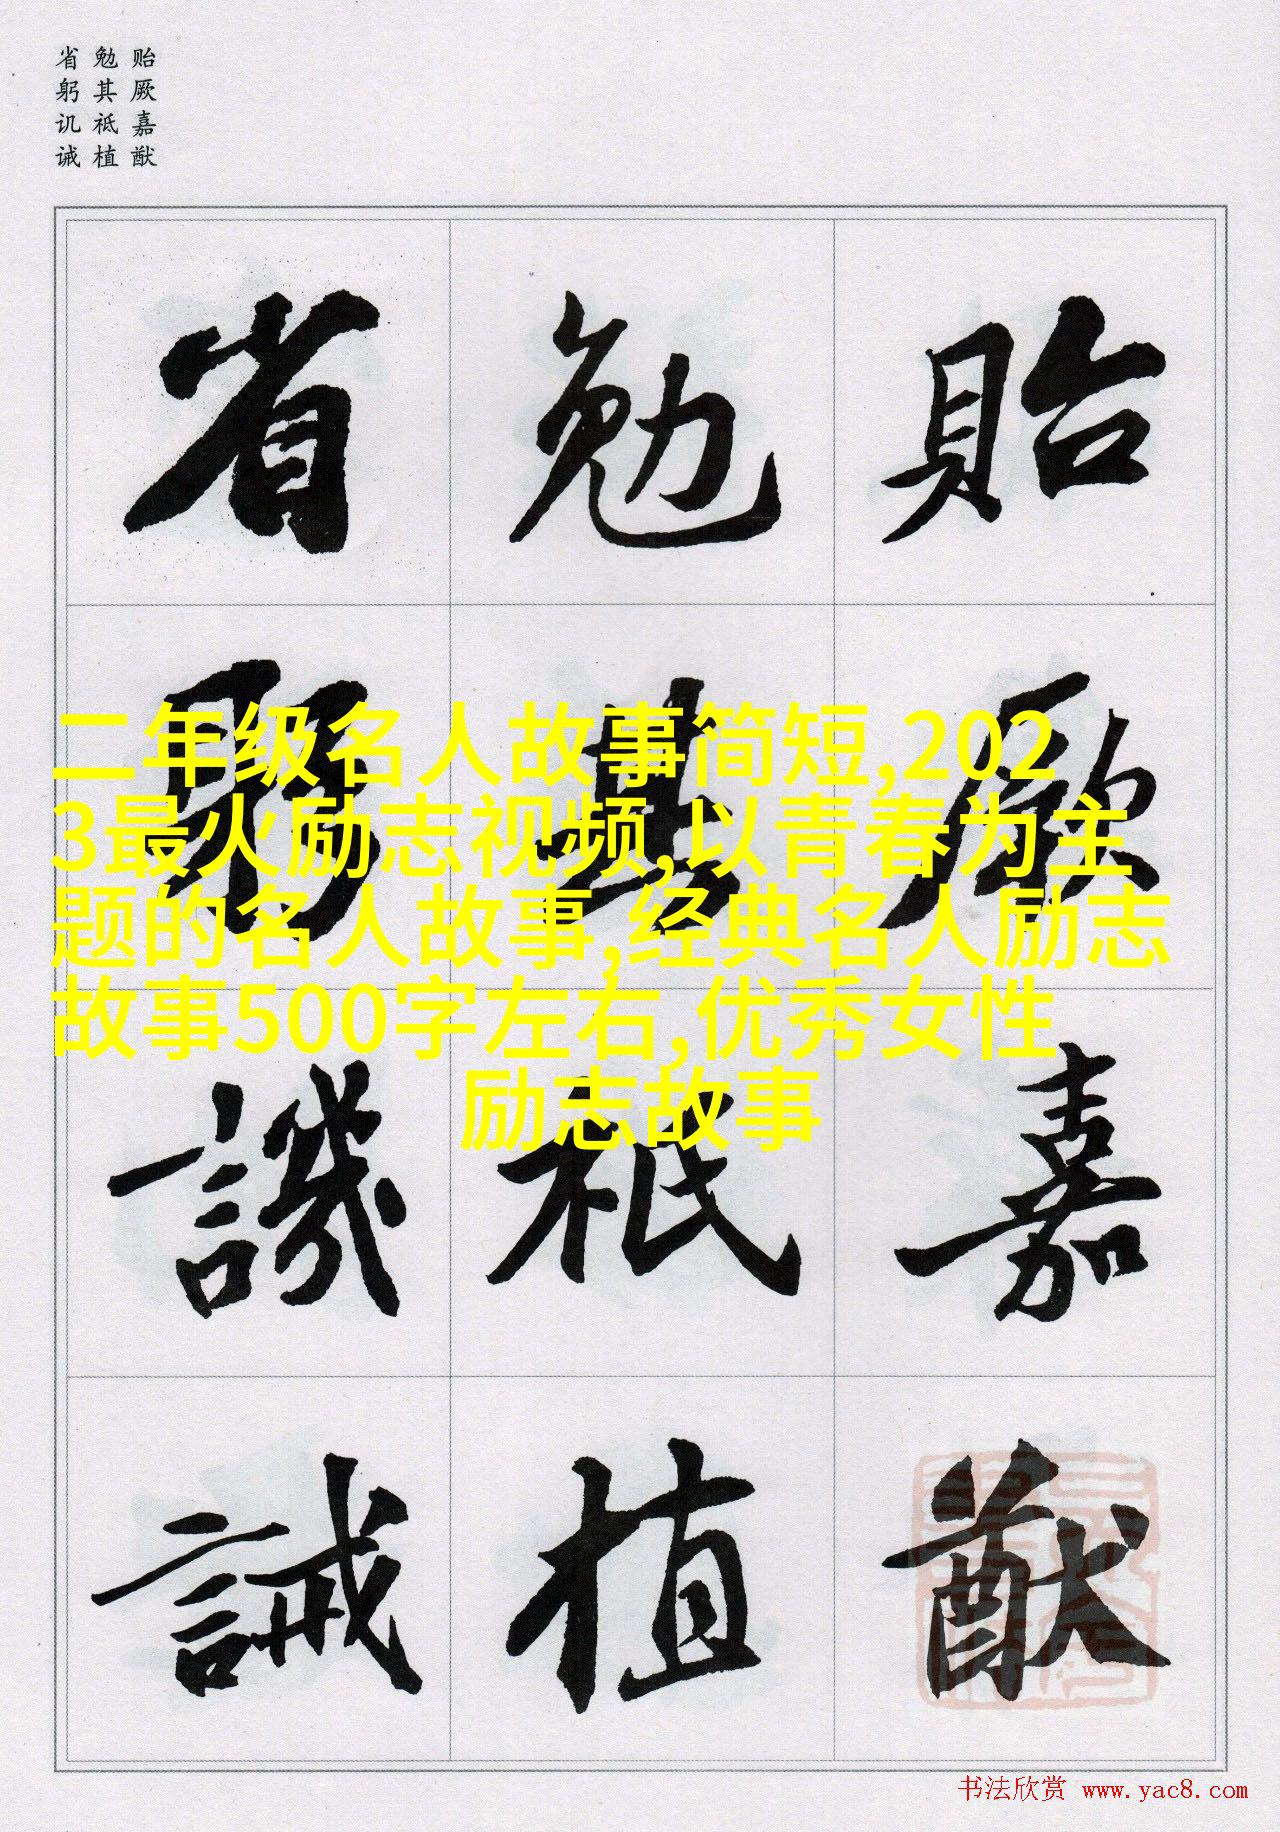 贻厥嘉猷
勉其祗植
省躬讥诫
貽厥嘉猷
勉其祗植
省躬譏誡
二年级名人故事简短,202
3最火励志视频,以青春为主
题的名人故事,经典名人励志
故事500字左右,优秀女性
励志故事
书法欣赏 www.yac8.com